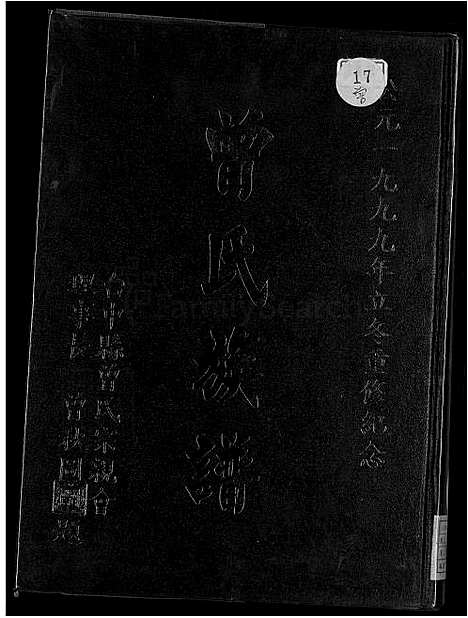 17
曾
元一九九九年立冬重修紀念
曾氏族譜
台中縣曾氏宗親會
理事長 曾 題
FamilySearch